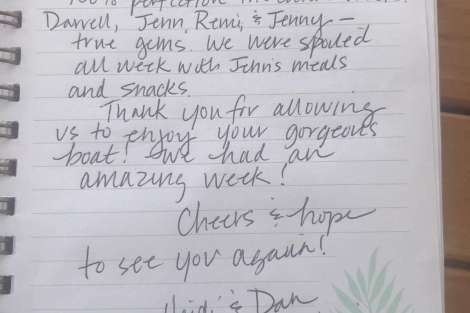 100% perfection
Darrell, Jenn, Remi, & Jenny –
true gems. We were spoiled
all week with Jenns meals
and snacks.
Thank you for allowing
us to enjoy your gorgeous
boat! We had an
amazing week!
Cheers & hope
to see you again!
Heidi & Dan